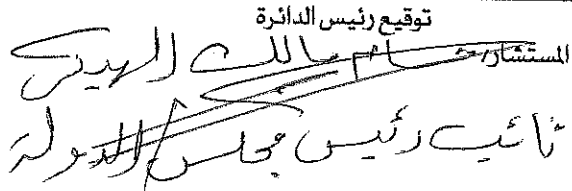 توقيع رئيس الدائرة
المستشار/ حسام مالك
نائب رئيس مجلس الدولة